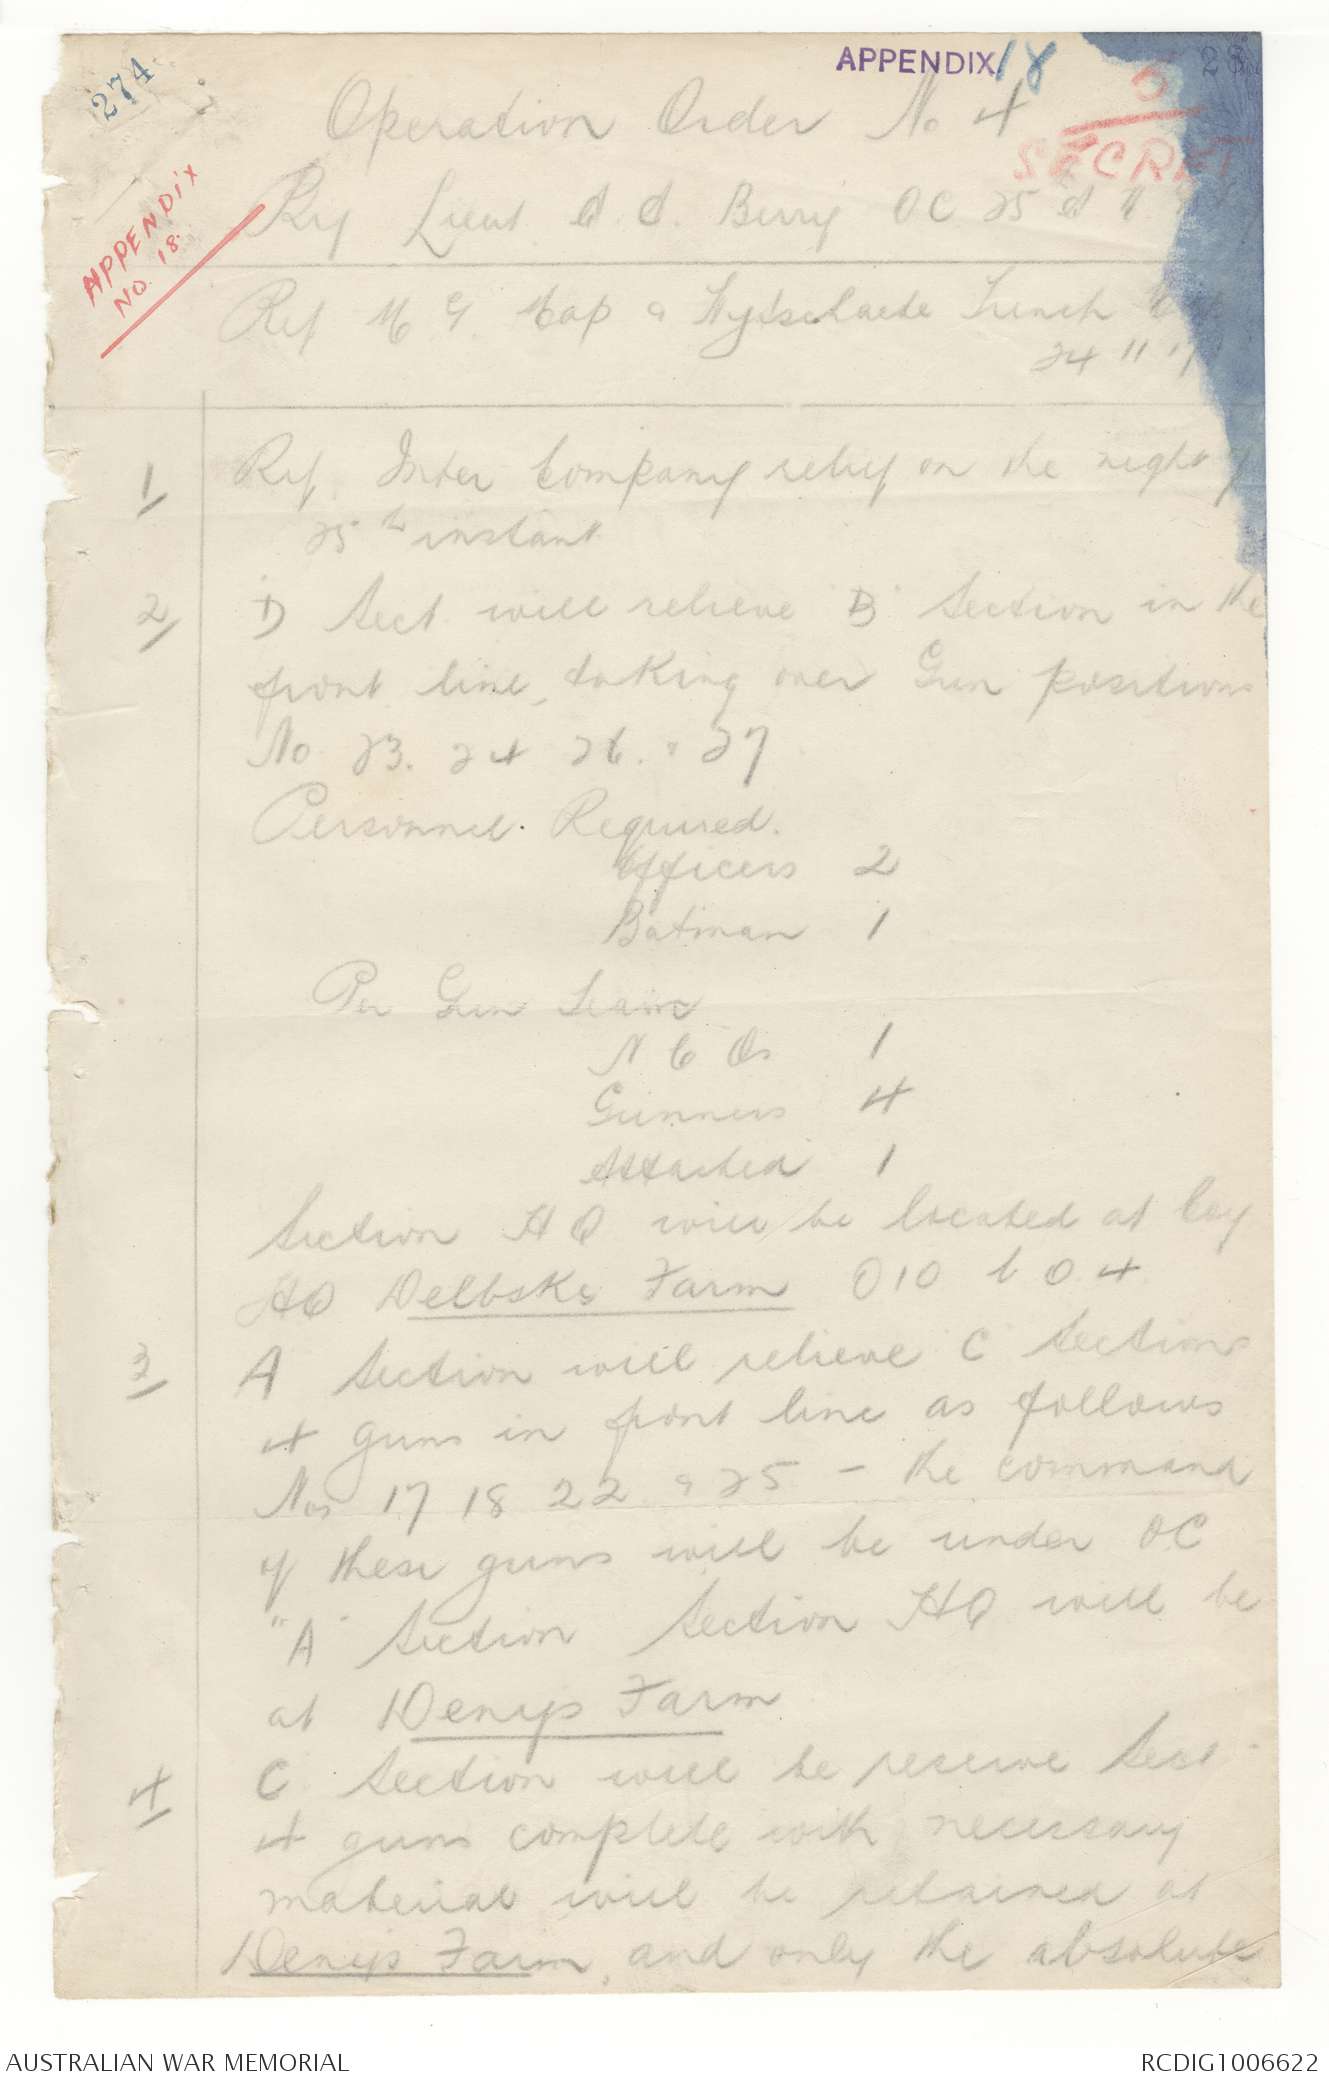 274
APPENDIX 18
SECRET
APPENDIX
NO. 18.
Operation Order No 4
Lieut Berry OC 25
Ref M G Map & Wytschaete Trench
24 11 17
1/ Ref. Inter Company relief on the night of
25th instant
2/ "D" Sect will relieve "B" Section in the
front line, taking over Gun positions
No 23. 24 26. & 27
Personnel. Required.
Officers 2
Batman 1
Per Gun Team
N C Os 1
Gunners 4
Attached 1
Section HQ will be located at Coy
HQ Delbske Farm O10 b 0.4
3/ A Section will relieve C Sections
4 guns in front line as follows
Nos 17 18 22 & 25 - the command
of these guns will be under OC
"A" Section Section HQ will be
at Denys Farm
4/ C Section will be reserve Sect
4 guns complete with necessary
material will be retained at
Denys Farm, and only the absolute
AUSTRALIAN WAR MEMORIAL
RCDIG1006622